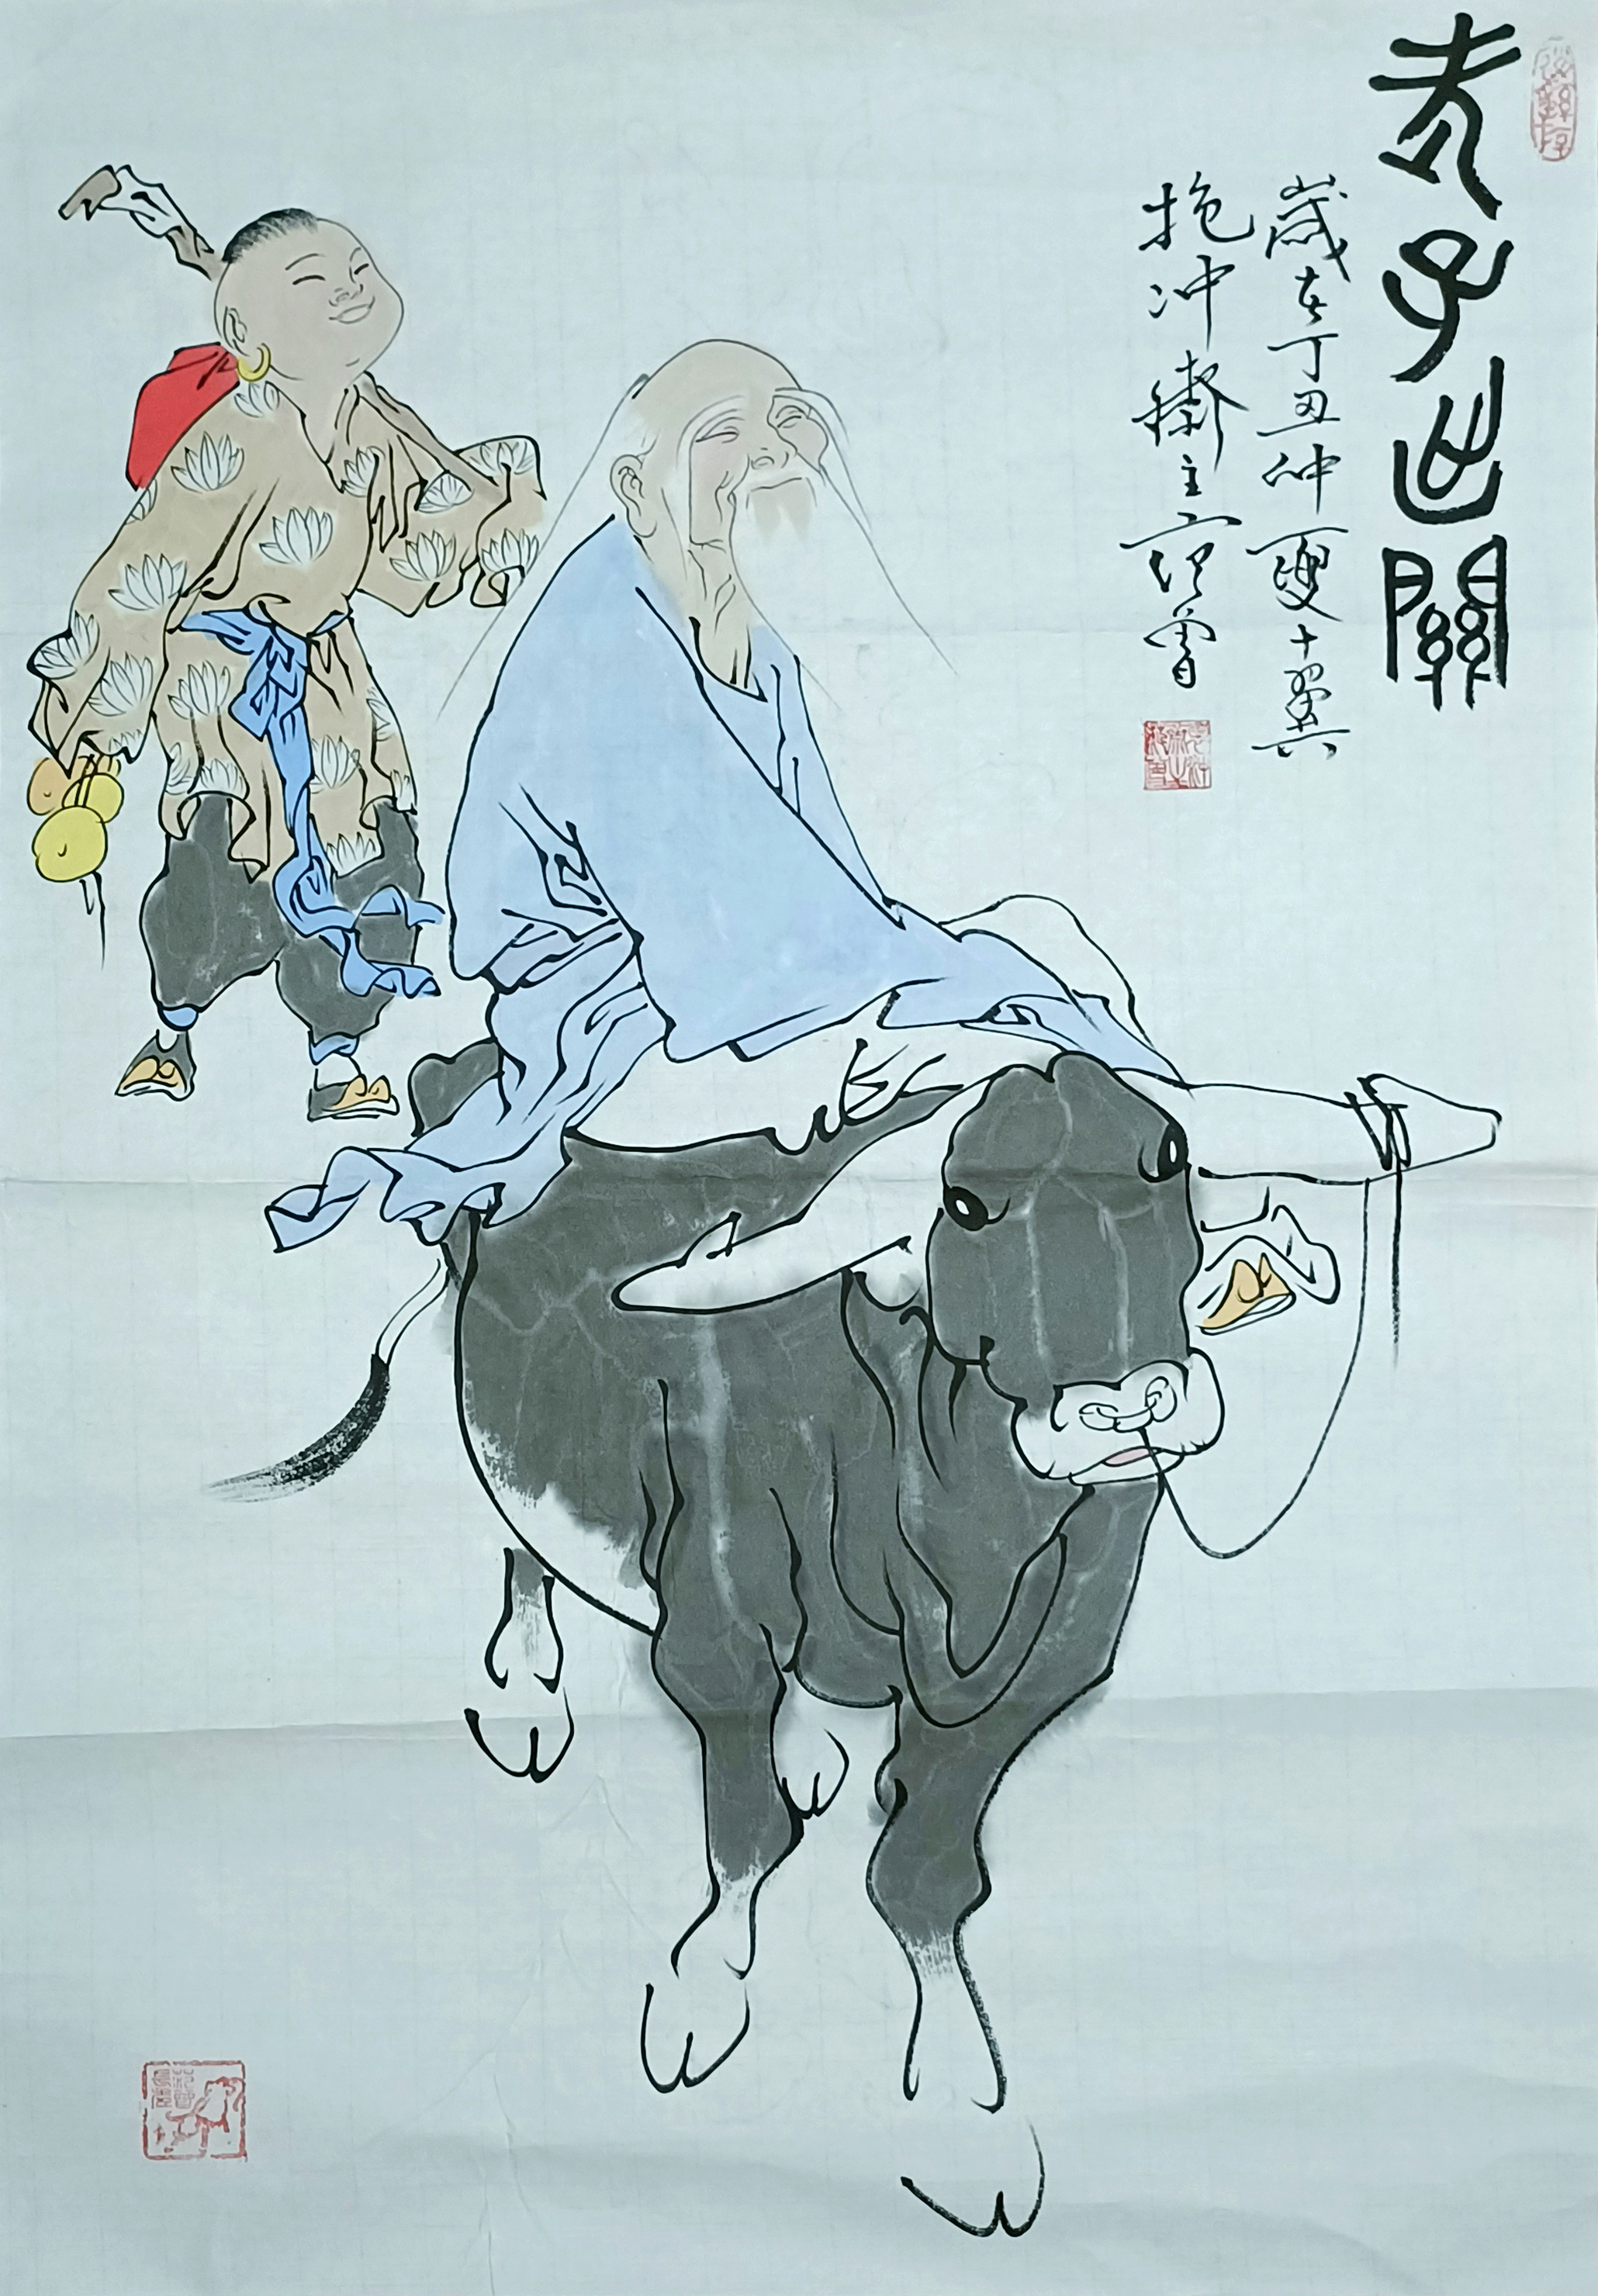 老子出關
歲在丁丑仲夏十翼
抱冲齋主范曾